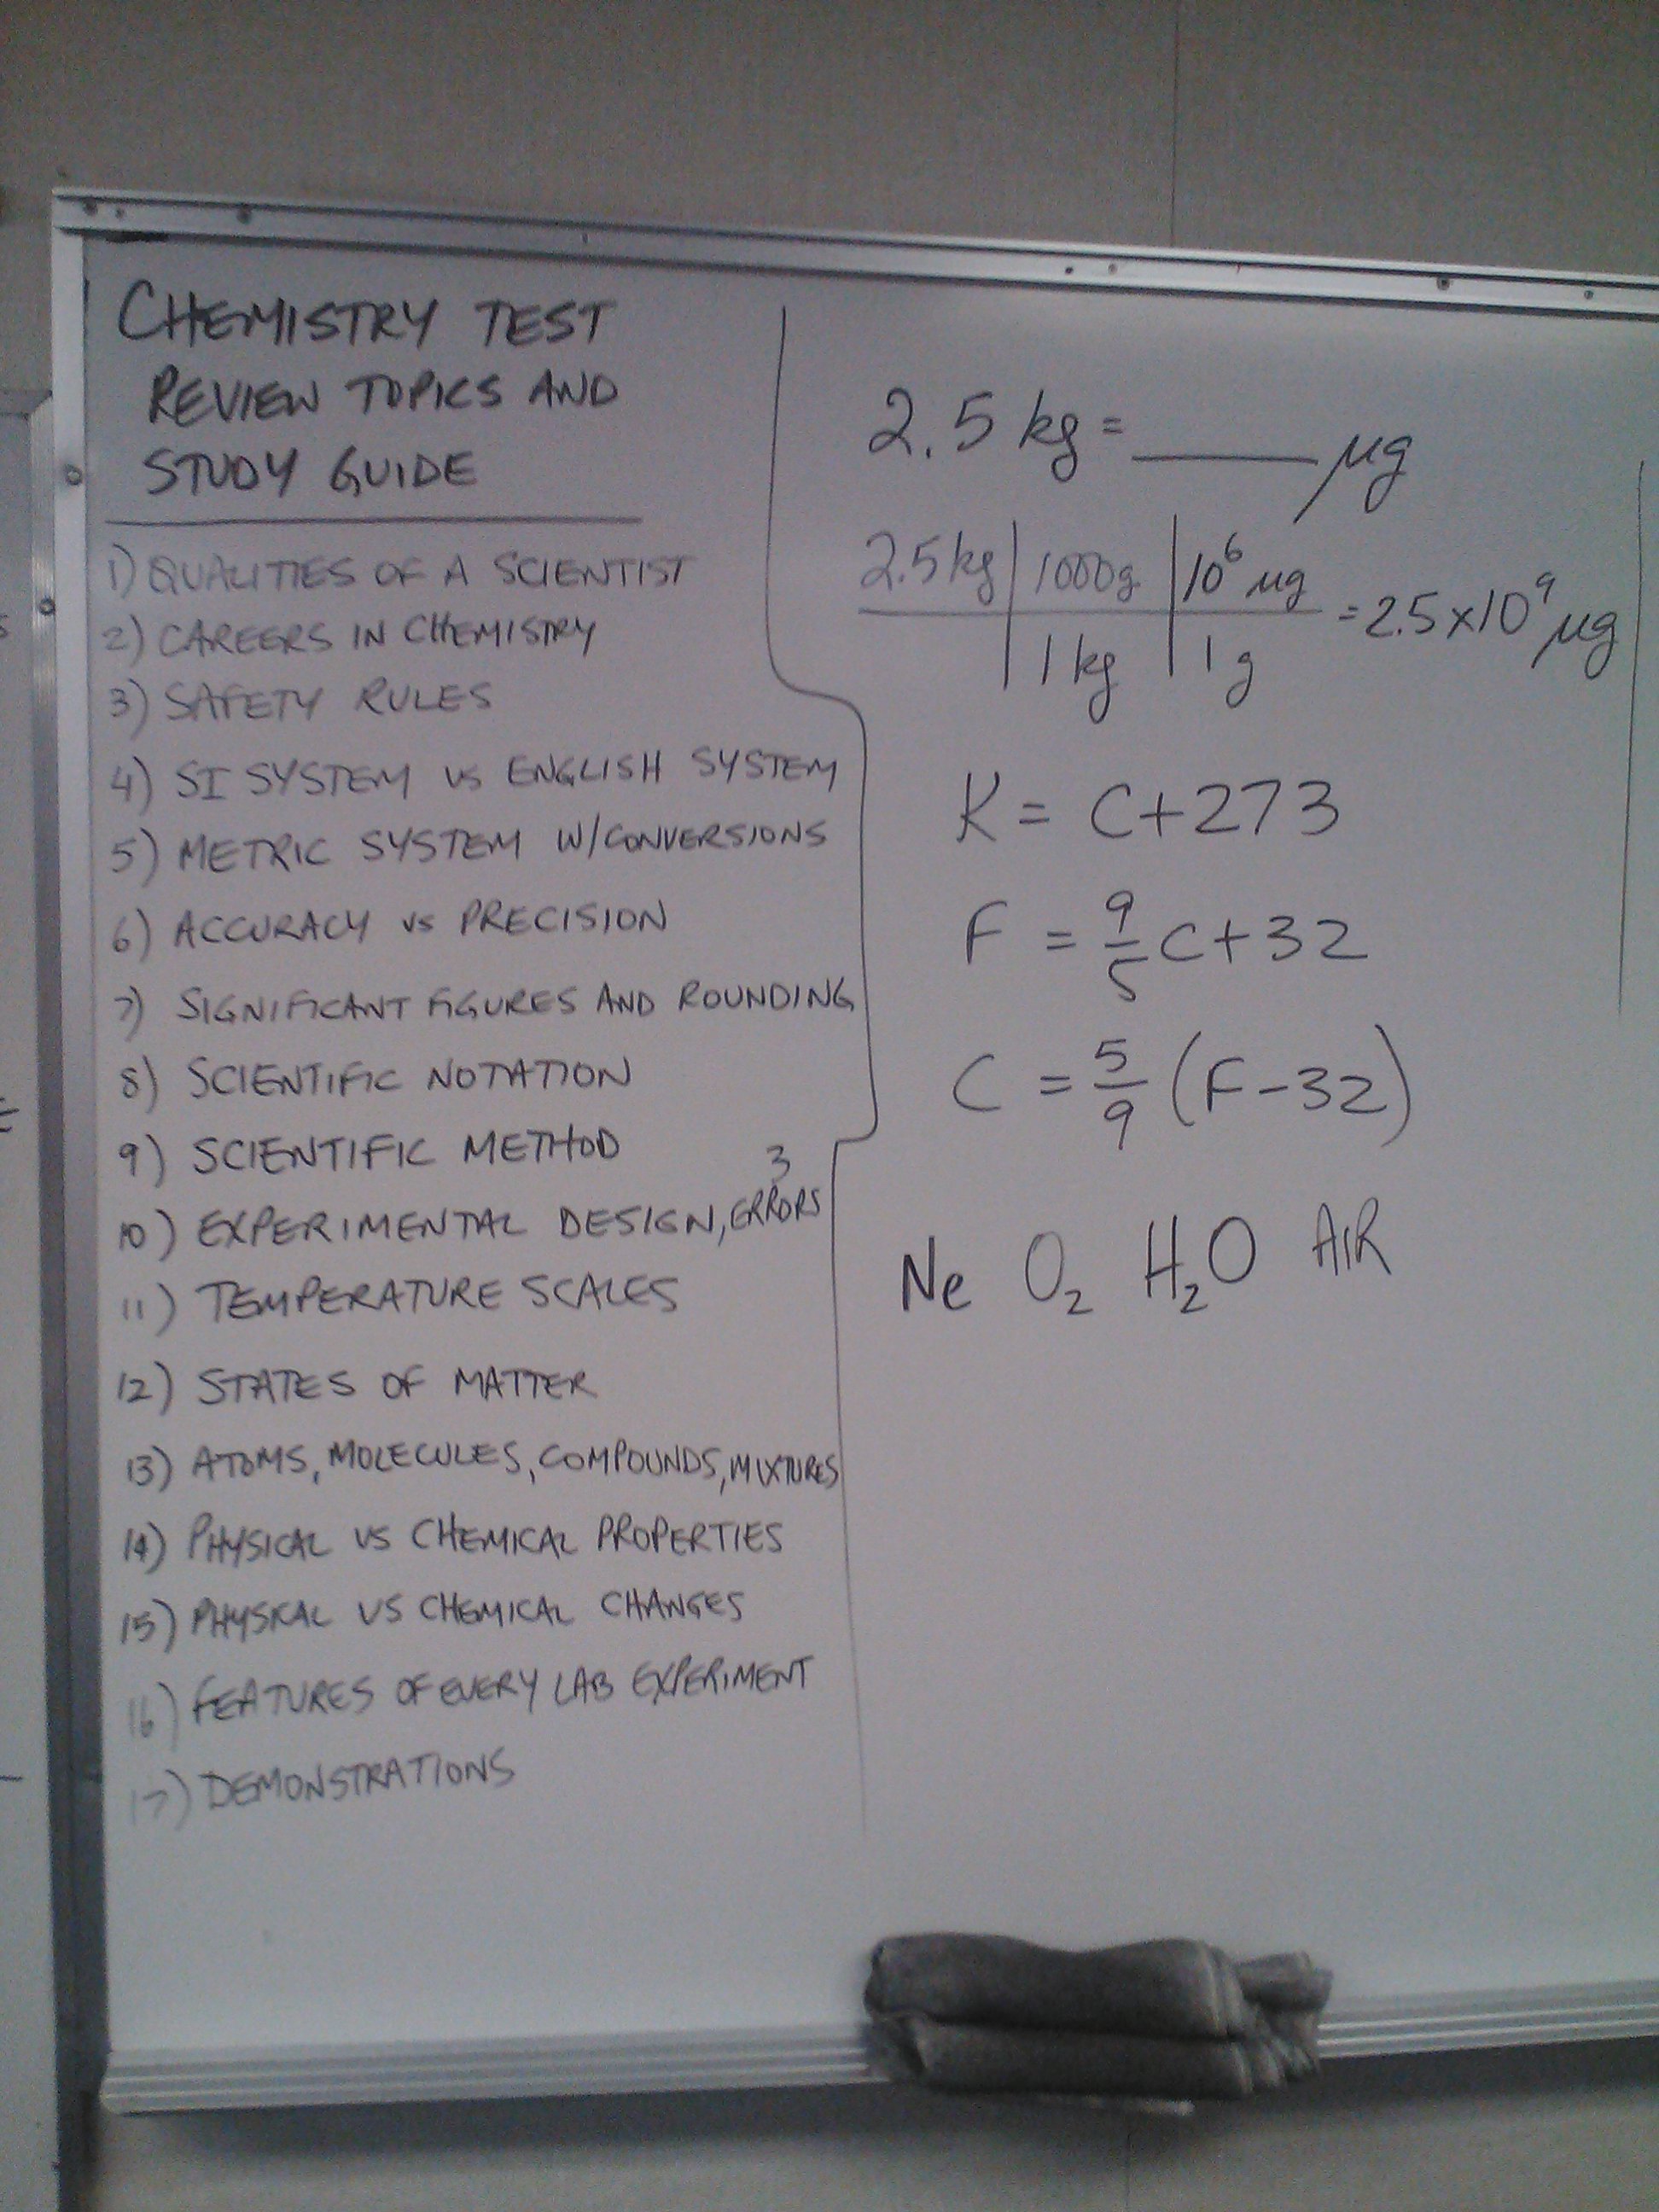 CHEMISTRY TEST
REVIEW TOPICS AND
STUDY GUIDE
1) QUALITIES OF A SCIENTIST
2) CAREERS IN CHEMISTRY
3) SAFETY RULES
4) SI SYSTEM VS ENGLISH SYSTEM
5) METRIC SYSTEM W/CONVERSIONS
6) ACCURACY VS PRECISION
7) SIGNIFICANT FIGURES AND ROUNDING
8) SCIENTIFIC NOTATION
9) SCIENTIFIC METHOD
3
10) EXPERIMENTAL DESIGN, ERRORS
11) TEMPERATURE SCALES
12) STATES OF MATTER
13) ATOMS, MOLECULES, COMPOUNDS, MIXTURES
14) PHYSICAL VS CHEMICAL PROPERTIES
15) PHYSICAL VS CHEMICAL CHANGES
16) FEATURES OF EVERY LAB EXPERIMENT
17) DEMONSTRATIONS
2.5 kg = ____ µg
2.5 kg | 1000g | 10⁶ µg = 2.5 x 10⁹ µg
| 1 kg | 1 g
K = C + 273
F = 9/5 C + 32
C = 5/9 (F - 32)
Ne O₂ H₂O AIR